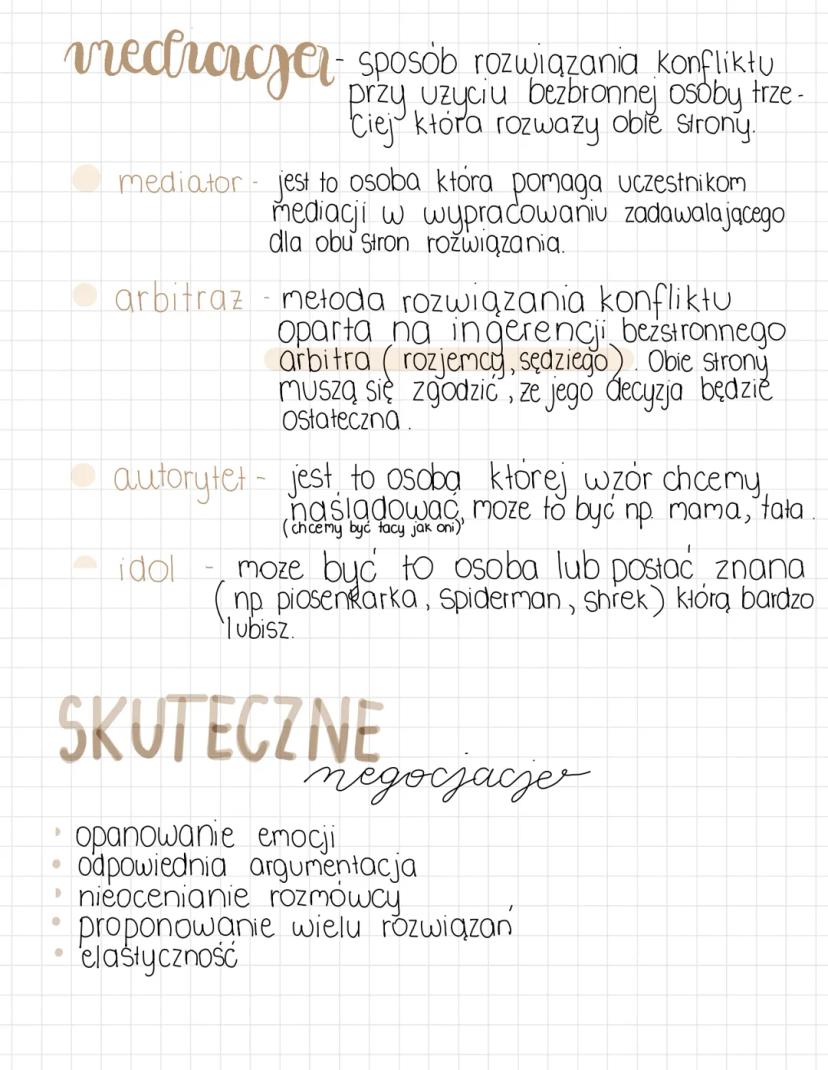 mediacje - sposób rozwiązania konfliktu
przy uzyciu bezbronnej osoby trze-
ciej która rozwazy obie strony.
mediator - jest to osoba która pomaga uczestnikom
mediacji w wypracowaniu zadawalającego
dla obu stron rozwiązania.
arbitraz - metoda rozwiązania konfliktu
oparta na ingerencji bezstronnego
arbitra (rozjemcy, sędziego). Obie strony
muszą się zgodzić, ze jego decyzja będzie
ostateczna.
autorytet - jest to osoba której wzór chcemy
naśladować, moze to być np. mama, tata.
(chcemy być tacy jak oni)
idol - moze być to osoba lub postać znana
(np piosenkarka, Spiderman, Shrek) którą bardzo
lubisz.
SKUTECZNE
negocjacje
• opanowanie emocji
• odpowiednia argumentacja
• nieocenianie rozmówcy
• proponowanie wielu rozwiązań
• elastyczność